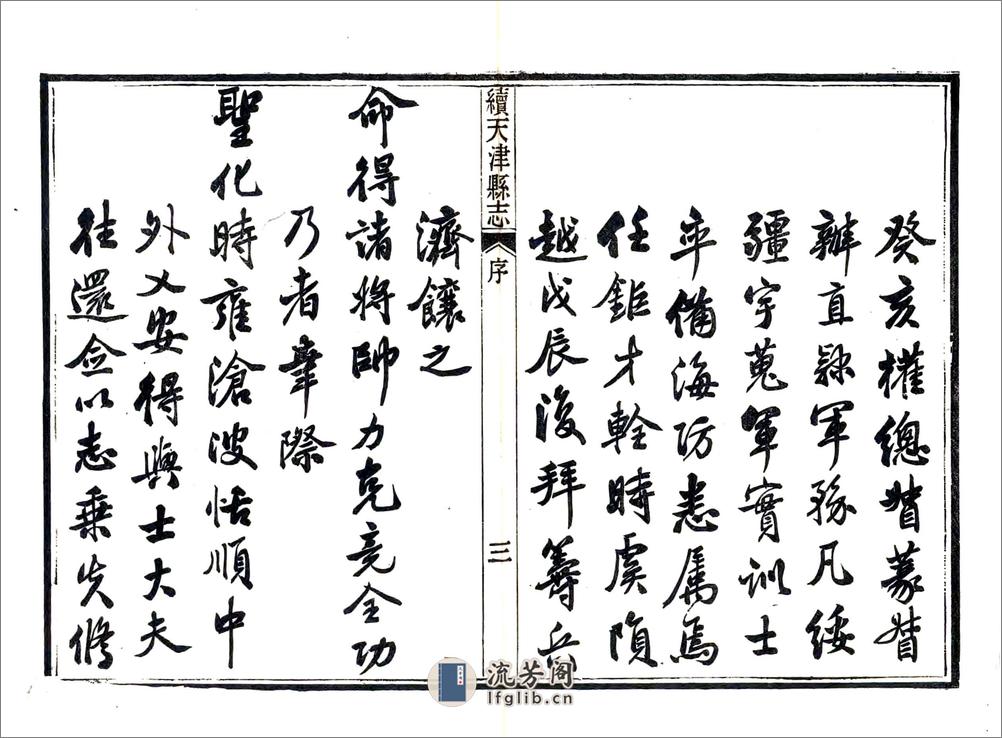 癸亥權總督篆督
辦直隸軍務凡綏
疆宇蒐軍實訓士
卒備海防悉属焉
任鉅才輇時虞隕
越戊辰復拜籌兵
續天津縣志
序
三
濟饟之
命得諸將帥力克竟全功
乃者幸際
聖化時雍滄波恬順中
外乂安得與士大夫
往還僉以志乘失修
流芳阁
lfglib.cn